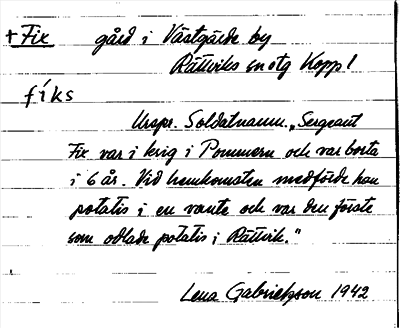 + Fix gård i Västgärde by
Rättviks sn otg Kopp.l
fíks
Urspr. Soldatnamn. „Sergeant
Fix var i krig i Pommern och var borta
i 6 år. Vid hemkomsten medförde han
potatis i en vante och var den förste
som odlade potatis i Rättvik."
Lena Gabrielsson 1942